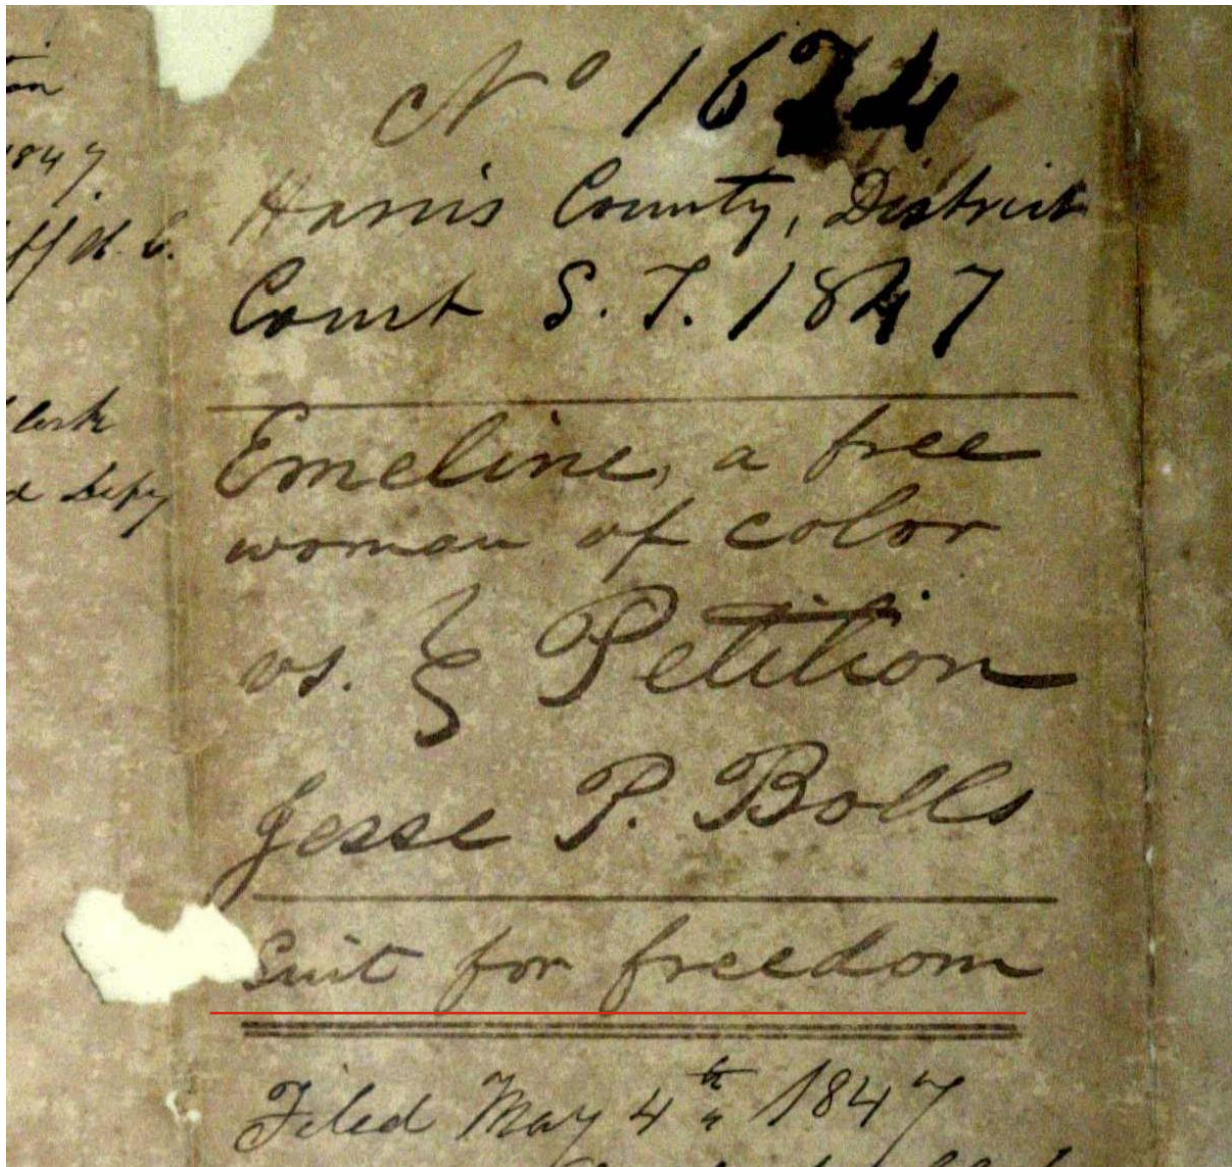 1847
Nº 1624
Harris County, District
Court S. T. 1847
Emeline, a free
woman of color
vs. Petition
Jesse P. Bolls
Suit for freedom
Filed May 4th 1847